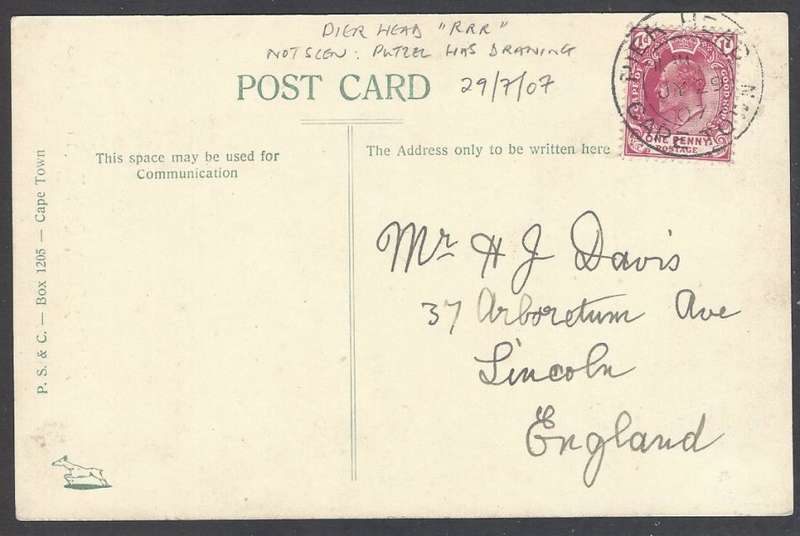 PIER HEAD "RRR"
NOT SEEN: PUTZEL HAS DRAWING
POST CARD 29/7/07
This space may be used for
Communication
The Address only to be written here
PIER HEAD
CAPE TOWN
ONE PENNY
POSTAGE
Mr H J Davis
37 Arboretum Ave
Lincoln
England
P. S. & C. — Box 1205 — Cape Town